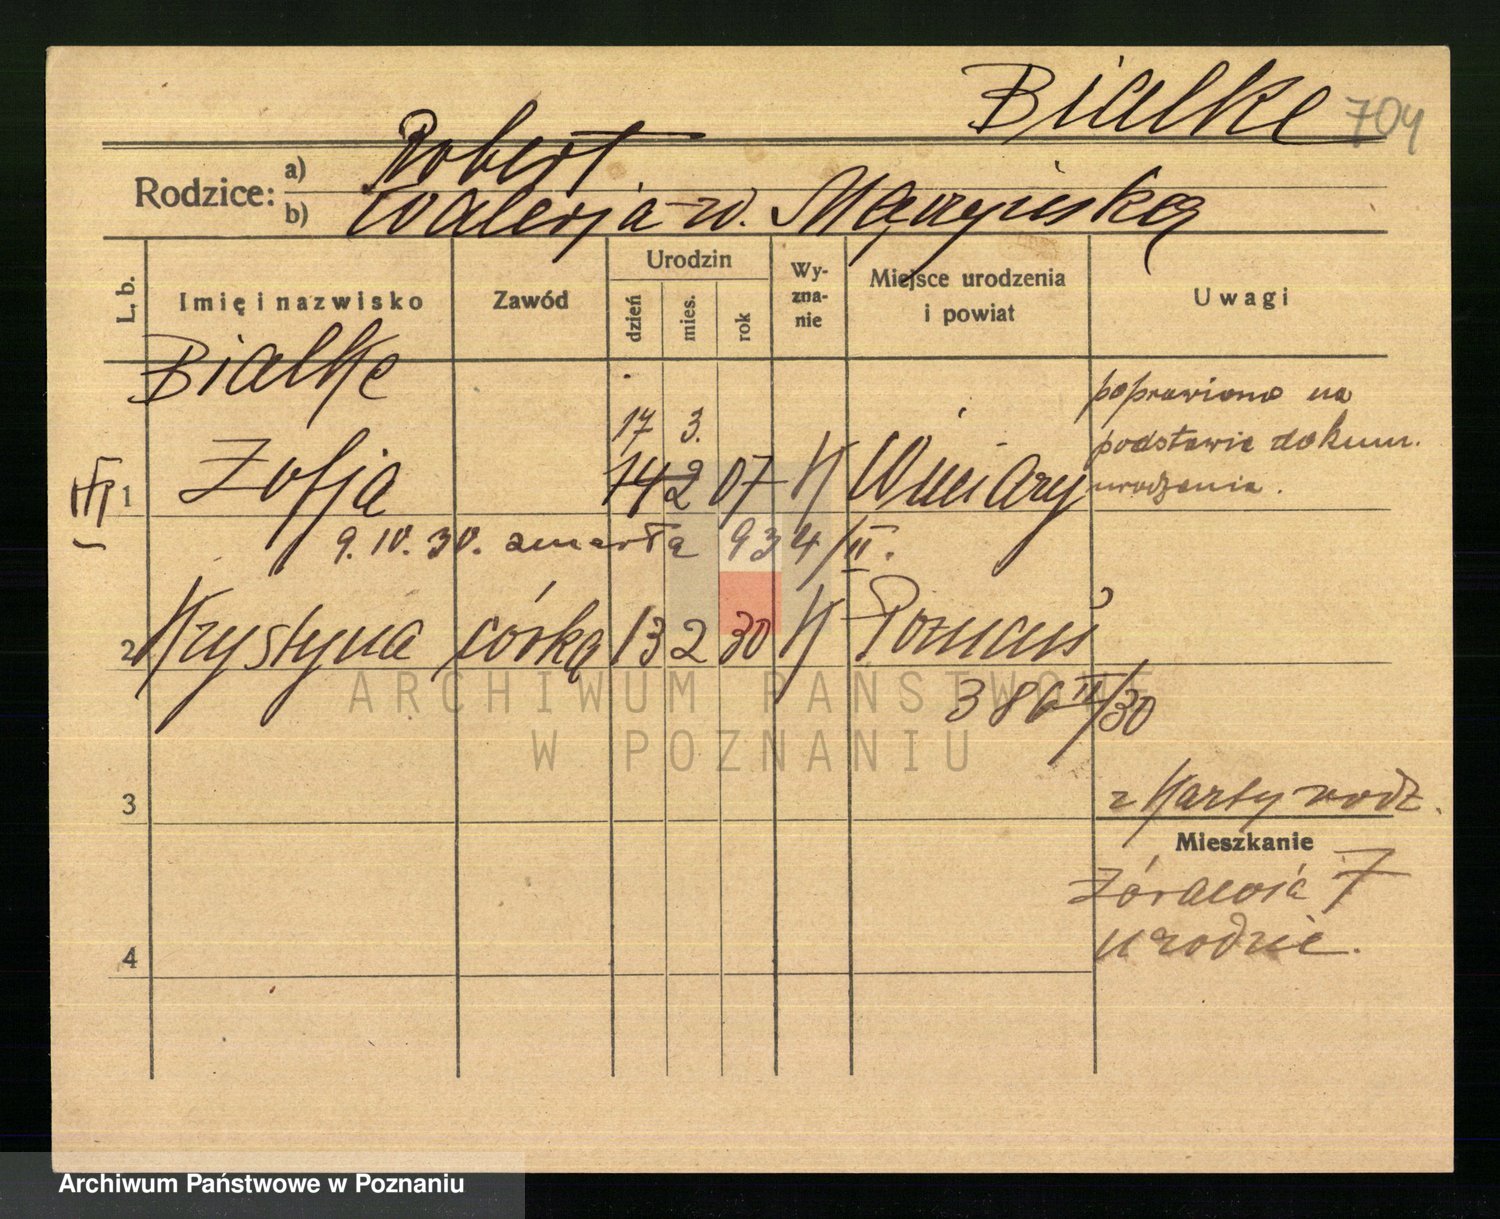 Bialke 704
Rodzice: a) Robert
b) Walerja - w.
L. b. Imię i nazwisko Zawód Urodzin dzień mies. rok Wyznanie Miejsce urodzenia i powiat Uwagi
Bialke
poprawiono na
17 3. podstawie dokum.
1 Zofja 14 2 07 K Winiary urodzenia.
9. IV. 30. zmarła 934/II.
2 Krystyna córka 13 2 30 K Poznań
386 II/30
ARCHIWUM PAŃSTWOWE
W POZNANIU
3 z Karty rodz.
Mieszkanie
Żórawia 7
4 urodzie.
Archiwum Państwowe w Poznaniu